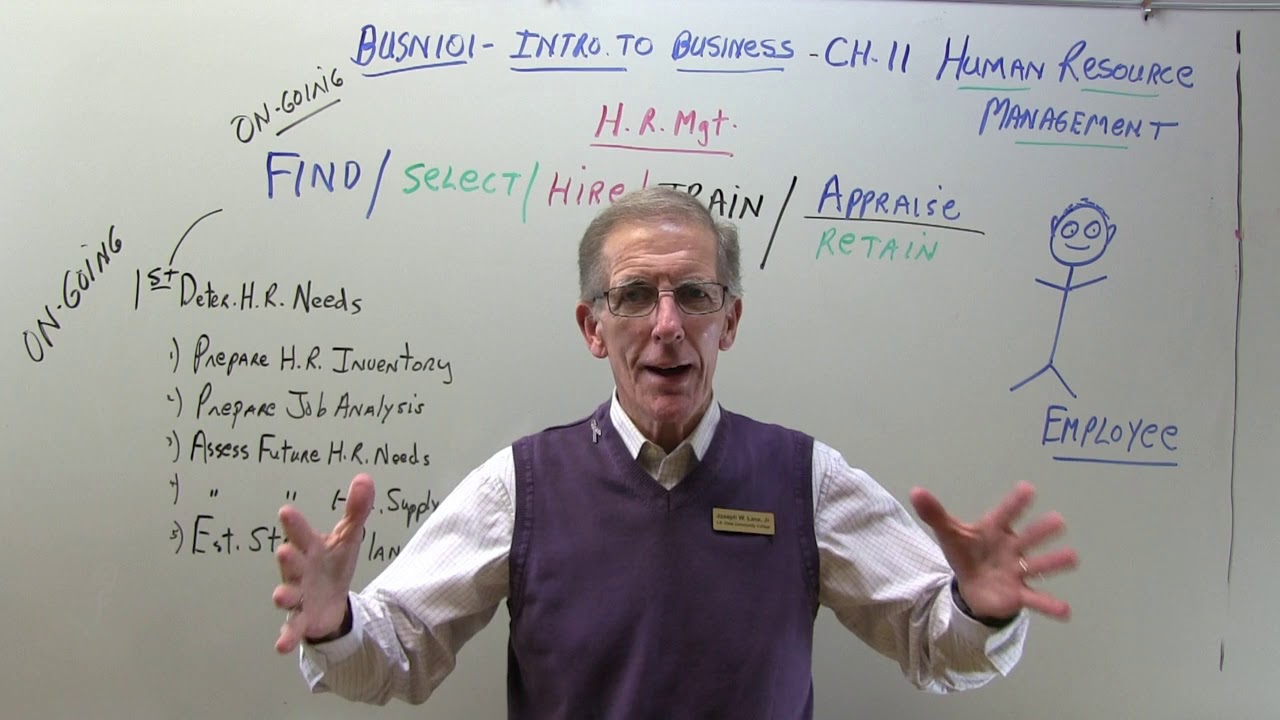 BUSN101 - INTRO. TO BUSINESS - CH. 11 HUMAN RESOURCE
MANAGEMENT
ON-GOING
H. R. Mgt.
FIND / SELECT / HIRE / TRAIN / APPRAISE
RETAIN
ON-GOING
1st DETER. H.R. NEEDS
1) PREPARE H.R. INVENTORY
2) PREPARE JOB ANALYSIS
3) ASSESS FUTURE H.R. NEEDS
4) " " Supply
5) EST.
EMPLOYEE
Joseph W. Lane, Jr